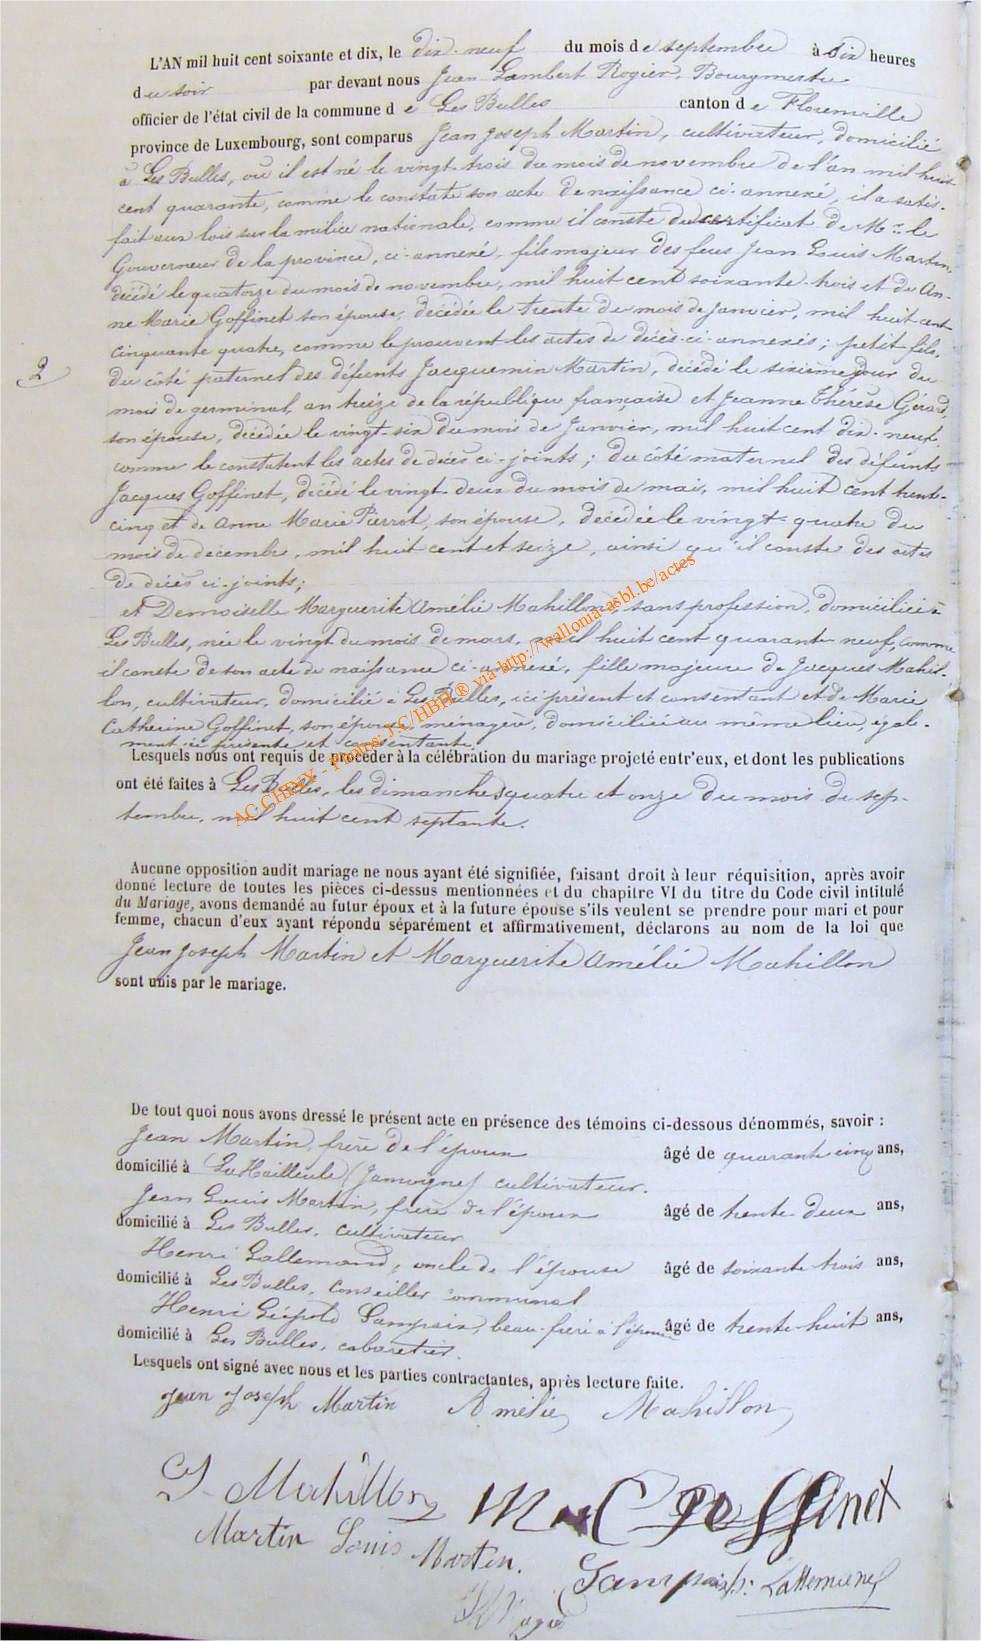 L'AN mil huit cent soixante et dix, le dix-neuf du mois de septembre à dix heures
du soir par devant nous Jean Lambert Rogier, Bourgmestre
officier de l'état civil de la commune de Les Bulles canton de Florenville
province de Luxembourg, sont comparus Jean Joseph Martin, cultivateur, domicilié
à Les Bulles, où il est né le vingt trois du mois de novembre de l'an mil huit
cent quarante, comme le constate son acte de naissance ci-annexé, il a satis-
fait aux lois sur la milice nationale, comme il conste du certificat de Mr le
Gouverneur de la province, ci-annexé, fils majeur des feus Jean Louis Martin,
décédé le quatorze du mois de novembre, mil huit cent soixante-trois et de An-
ne Marie Goffinet son épouse, décédée le trente du mois de janvier, mil huit cent
cinquante quatre, comme le prouvent les actes de décès ci-annexés; petit-fils,
2
du côté paternel des défunts Jacquemin Martin, décédé le sixième jour du
mois de germinal, an treize de la république française et Jeanne Thérèse Gérard,
son épouse, décédée le vingt-six du mois de Janvier, mil huit cent dix-neuf,
comme le constatent les actes de décès ci-joints; du côté maternel des défunts
Jacques Goffinet, décédé le vingt deux du mois de mai, mil huit cent trente-
cinq et de Anne Marie Pierrot, son épouse, décédée le vingt-quatre du
mois de décembre, mil huit cent et seize, ainsi qu'il conste des actes
de décès ci-joints;
et Demoiselle Marguerite Amélie Mahillon, sans profession, domiciliée à
Les Bulles, née le vingt du mois de mars, mil huit cent quarante neuf, comme
il conste de son acte de naissance ci-annexé, fille majeure de Jacques Mahil-
lon, cultivateur, domicilié à Les Bulles, ici présent et consentant et de Marie
Catherine Goffinet, son épouse, ménagère, domiciliée au même lieu, égale-
ment ici présente et consentante.
Lesquels nous ont requis de procéder à la célébration du mariage projeté entr'eux, et dont les publications
ont été faites à Les Bulles, les dimanches quatre et onze du mois de sep-
tembre, mil huit cent septante.
AC CHINY - Photos: J.C/HBH ® via http://wallonia-asbl.be/actes
Aucune opposition audit mariage ne nous ayant été signifiée, faisant droit à leur réquisition, après avoir
donné lecture de toutes les pièces ci-dessus mentionnées et du chapitre VI du titre du Code civil intitulé
du Mariage, avons demandé au futur époux et à la future épouse s'ils veulent se prendre pour mari et pour
femme, chacun d'eux ayant répondu séparément et affirmativement, déclarons au nom de la loi que
Jean Joseph Martin et Marguerite Amélie Mahillon
sont unis par le mariage.
De tout quoi nous avons dressé le présent acte en présence des témoins ci-dessous dénommés, savoir :
Jean Martin, frère de l'époux âgé de quarante cinq ans,
domicilié à La Hailleule (Jamoigne) cultivateur.
Jean Louis Martin, frère de l'époux âgé de trente deux ans,
domicilié à Les Bulles, cultivateur
Henri Lallemand, oncle de l'épouse âgé de soixante trois ans,
domicilié à Les Bulles, conseiller communal
Henri Léopold Sampaix, beau-frère à l'époux âgé de trente-huit ans,
domicilié à Les Bulles, cabaretier.
Lesquels ont signé avec nous et les parties contractantes, après lecture faite.
Jean Joseph Martin Amélie Mahillon
J. Mahillon M C Goffinet
Martin Louis Martin.
Sampaix h: Lallemand